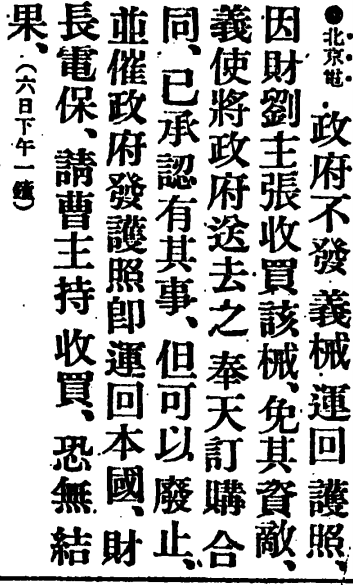 ●北京電 政府不發義械運回護照、
因財劉主張收買該械、免其資敵、
義使將政府送去之奉天訂購合
同、已承認有其事、但可以廢止、
並催政府發護照卽運回本國、財
長電保、請曹主持收買、恐無結
果、（六日下午一鐘）